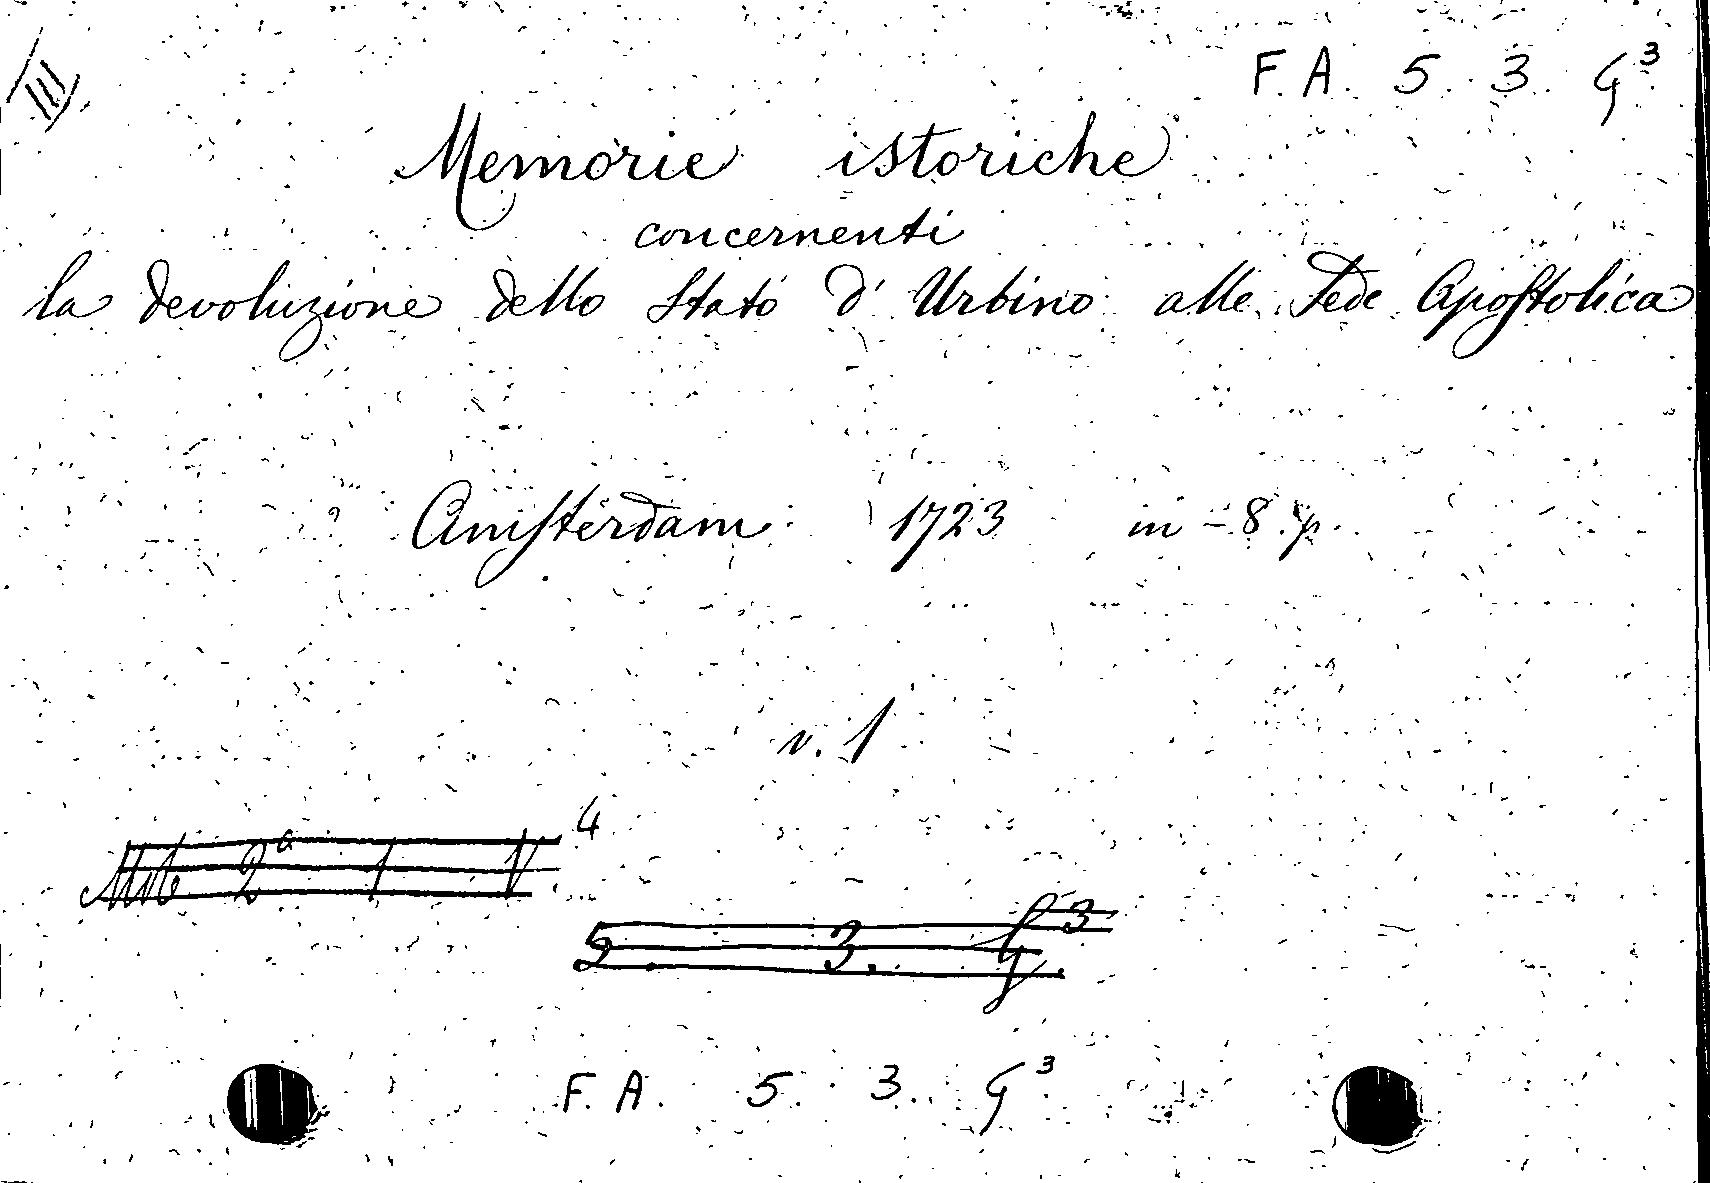 III
F. A. 5. 3. G³
Memorie istoriche
concernenti
la devoluzione dello Stato d' Urbino alle Sede Apostolica
Amsterdam 1723 in-8. p.
v. 1
Mob 2ª 1 V⁴
5. 3. G³.
F. A. 5. 3. G³